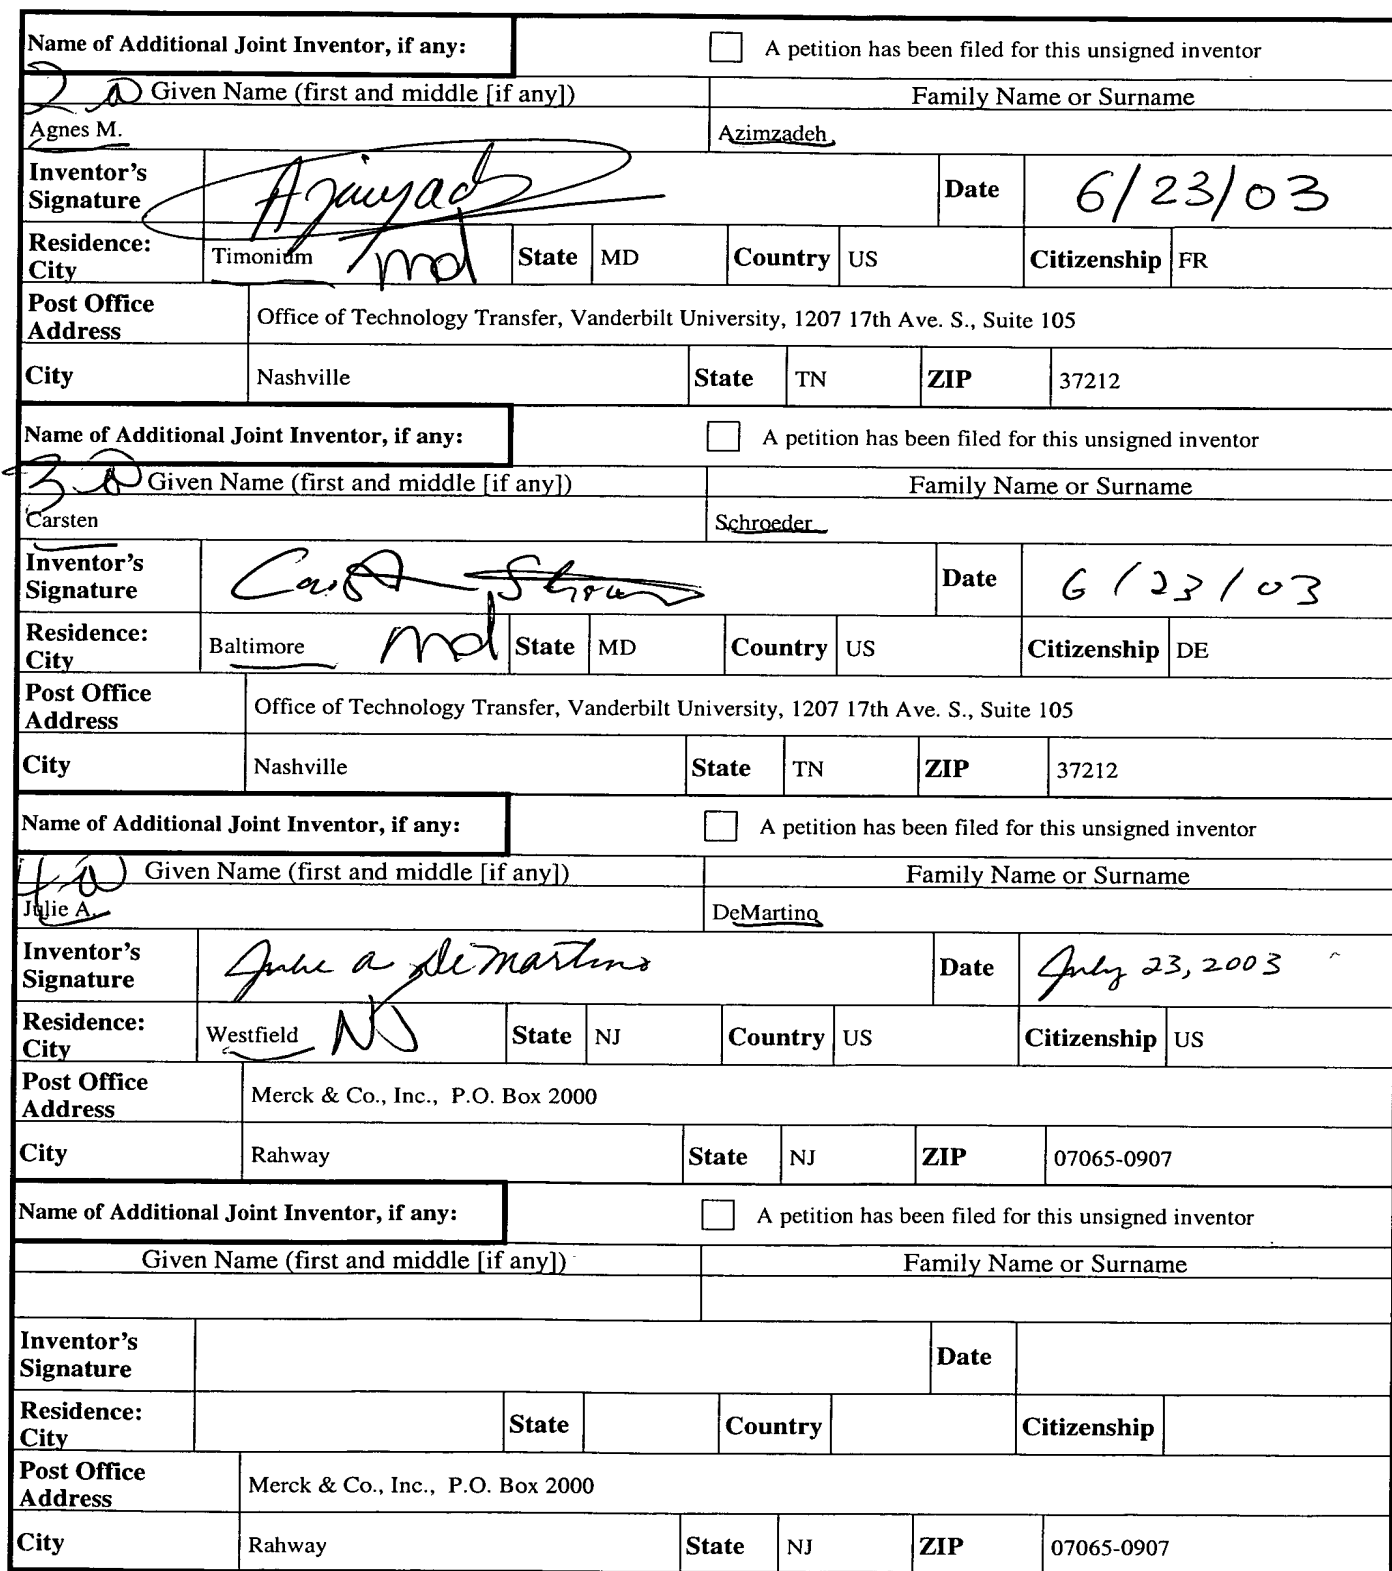 Name of Additional Joint Inventor, if any: A petition has been filed for this unsigned inventor
Given Name (first and middle [if any]) Family Name or Surname
Agnes M. Azimzadeh
Inventor's Signature Date 6/23/03
Residence: City Timonium Md State MD Country US Citizenship FR
Post Office Address Office of Technology Transfer, Vanderbilt University, 1207 17th Ave. S., Suite 105
City Nashville State TN ZIP 37212
Name of Additional Joint Inventor, if any: A petition has been filed for this unsigned inventor
Given Name (first and middle [if any]) Family Name or Surname
Carsten Schroeder
Inventor's Signature Date 6/23/03
Residence: City Baltimore Md State MD Country US Citizenship DE
Post Office Address Office of Technology Transfer, Vanderbilt University, 1207 17th Ave. S., Suite 105
City Nashville State TN ZIP 37212
Name of Additional Joint Inventor, if any: A petition has been filed for this unsigned inventor
Given Name (first and middle [if any]) Family Name or Surname
Julie A. DeMartino
Inventor's Signature Julie A DeMartino Date July 23, 2003
Residence: City Westfield NJ State NJ Country US Citizenship US
Post Office Address Merck & Co., Inc., P.O. Box 2000
City Rahway State NJ ZIP 07065-0907
Name of Additional Joint Inventor, if any: A petition has been filed for this unsigned inventor
Given Name (first and middle [if any]) Family Name or Surname
Inventor's Signature Date
Residence: City State Country Citizenship
Post Office Address Merck & Co., Inc., P.O. Box 2000
City Rahway State NJ ZIP 07065-0907